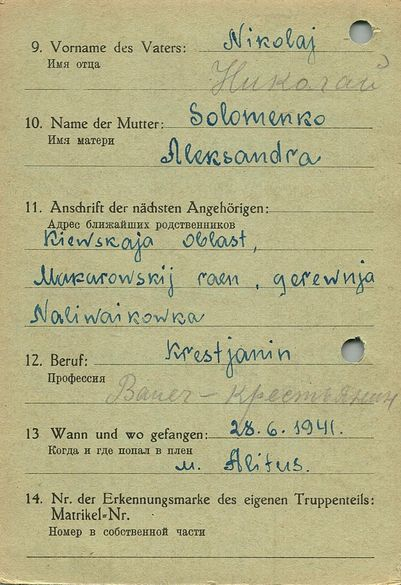 9. Vorname des Vaters: Nikolaj
Имя отца
Николай
10. Name der Mutter: Solomenko
Имя матери
Aleksandra
11. Anschrift der nächsten Angehörigen:
Адрес ближайших родственников
Kiewskaja oblast,
Makarowskij raen, gerewnja
Naliwaikowka
12. Beruf: Krestjanin
Профессия
Bauer - крестьянин
13 Wann und wo gefangen: 28.6.1941.
Когда и где попал в плен
м. Alitus.
14. Nr. der Erkennungsmarke des eigenen Truppenteils:
Matrikel-Nr.
Номер в собственной части